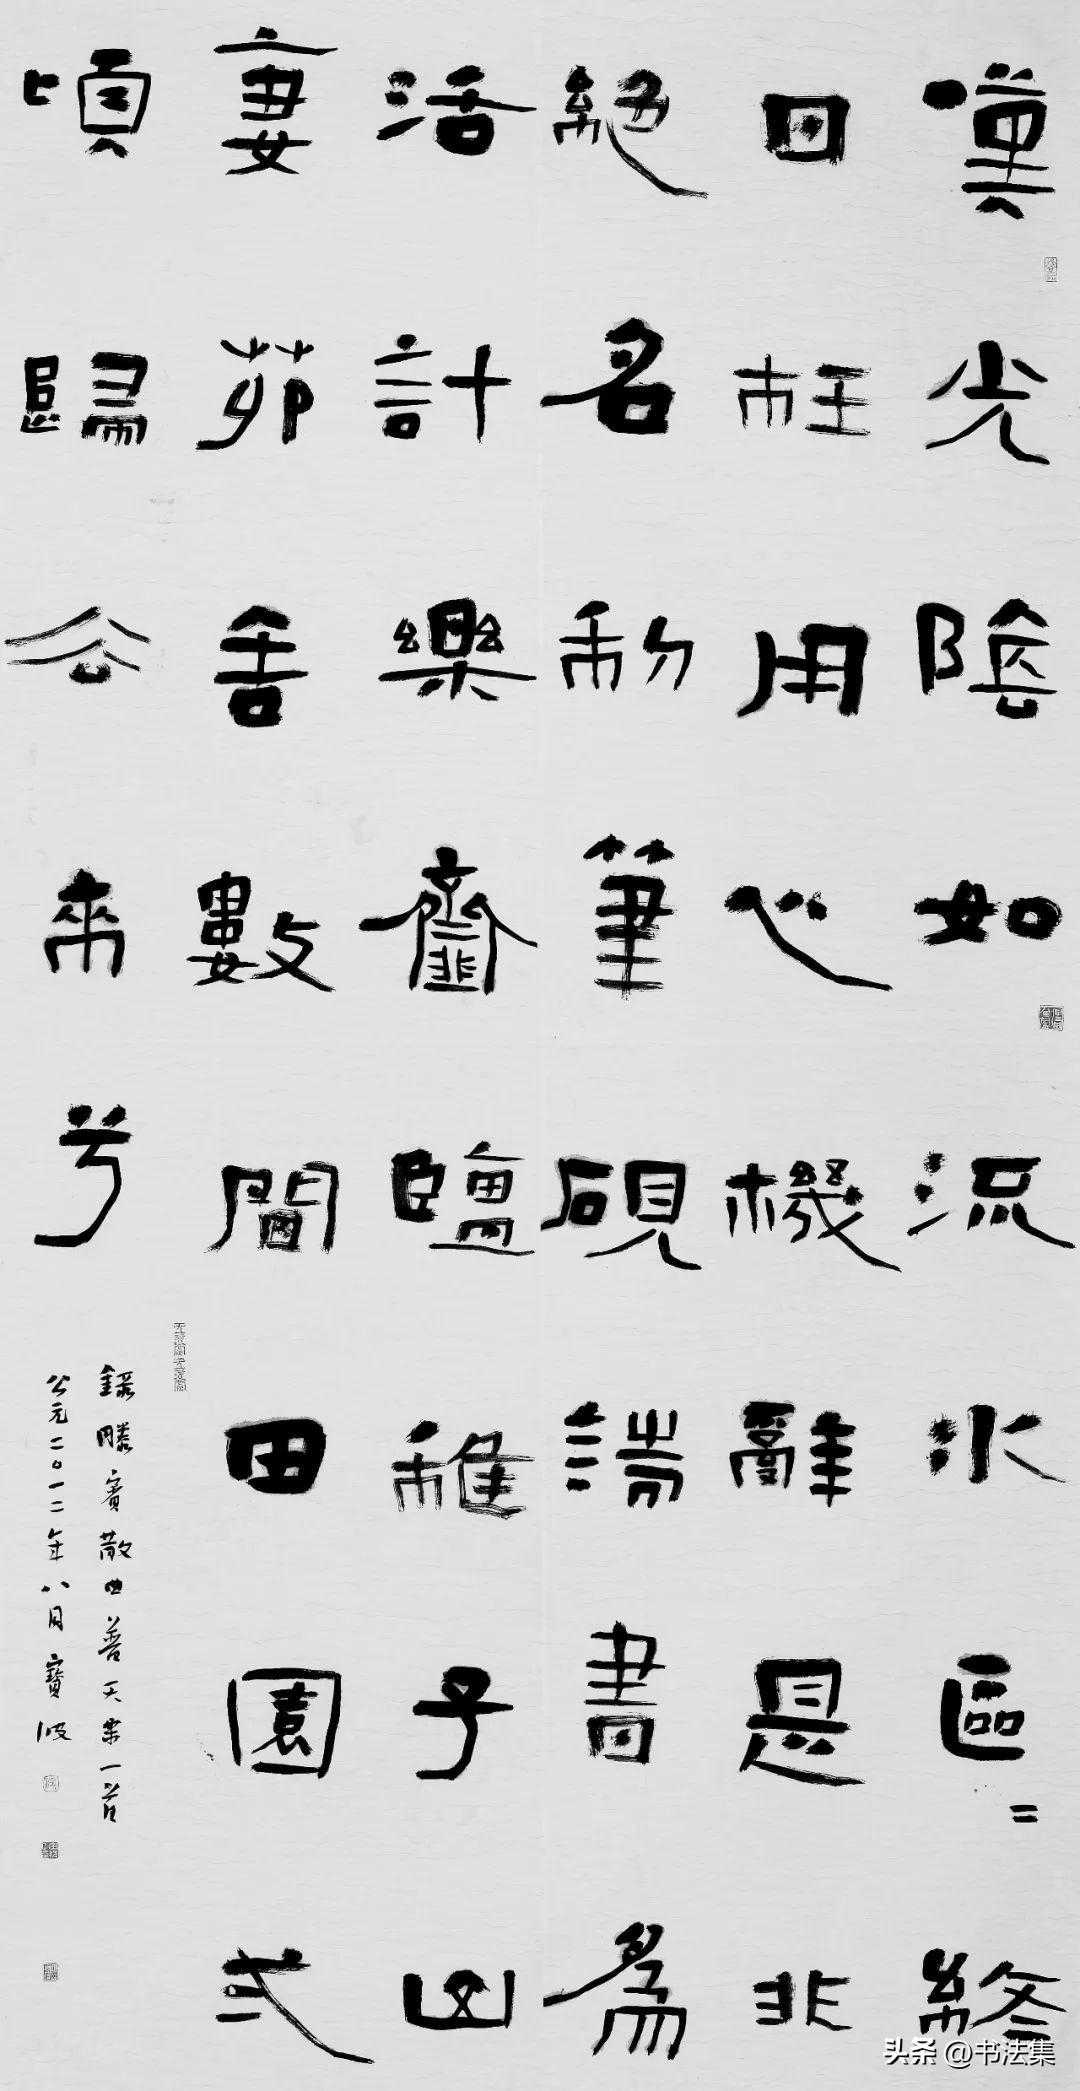 嘆光陰如流水區〻終
日枉用心機辭是非
絕名利筆硯詩書為
活計樂齏鹽稚子山
妻茆舍數間田園弍
頃歸去來兮
錄滕賓散曲普天樂一首
公元二〇一二年八月寶波
头条 @书法集